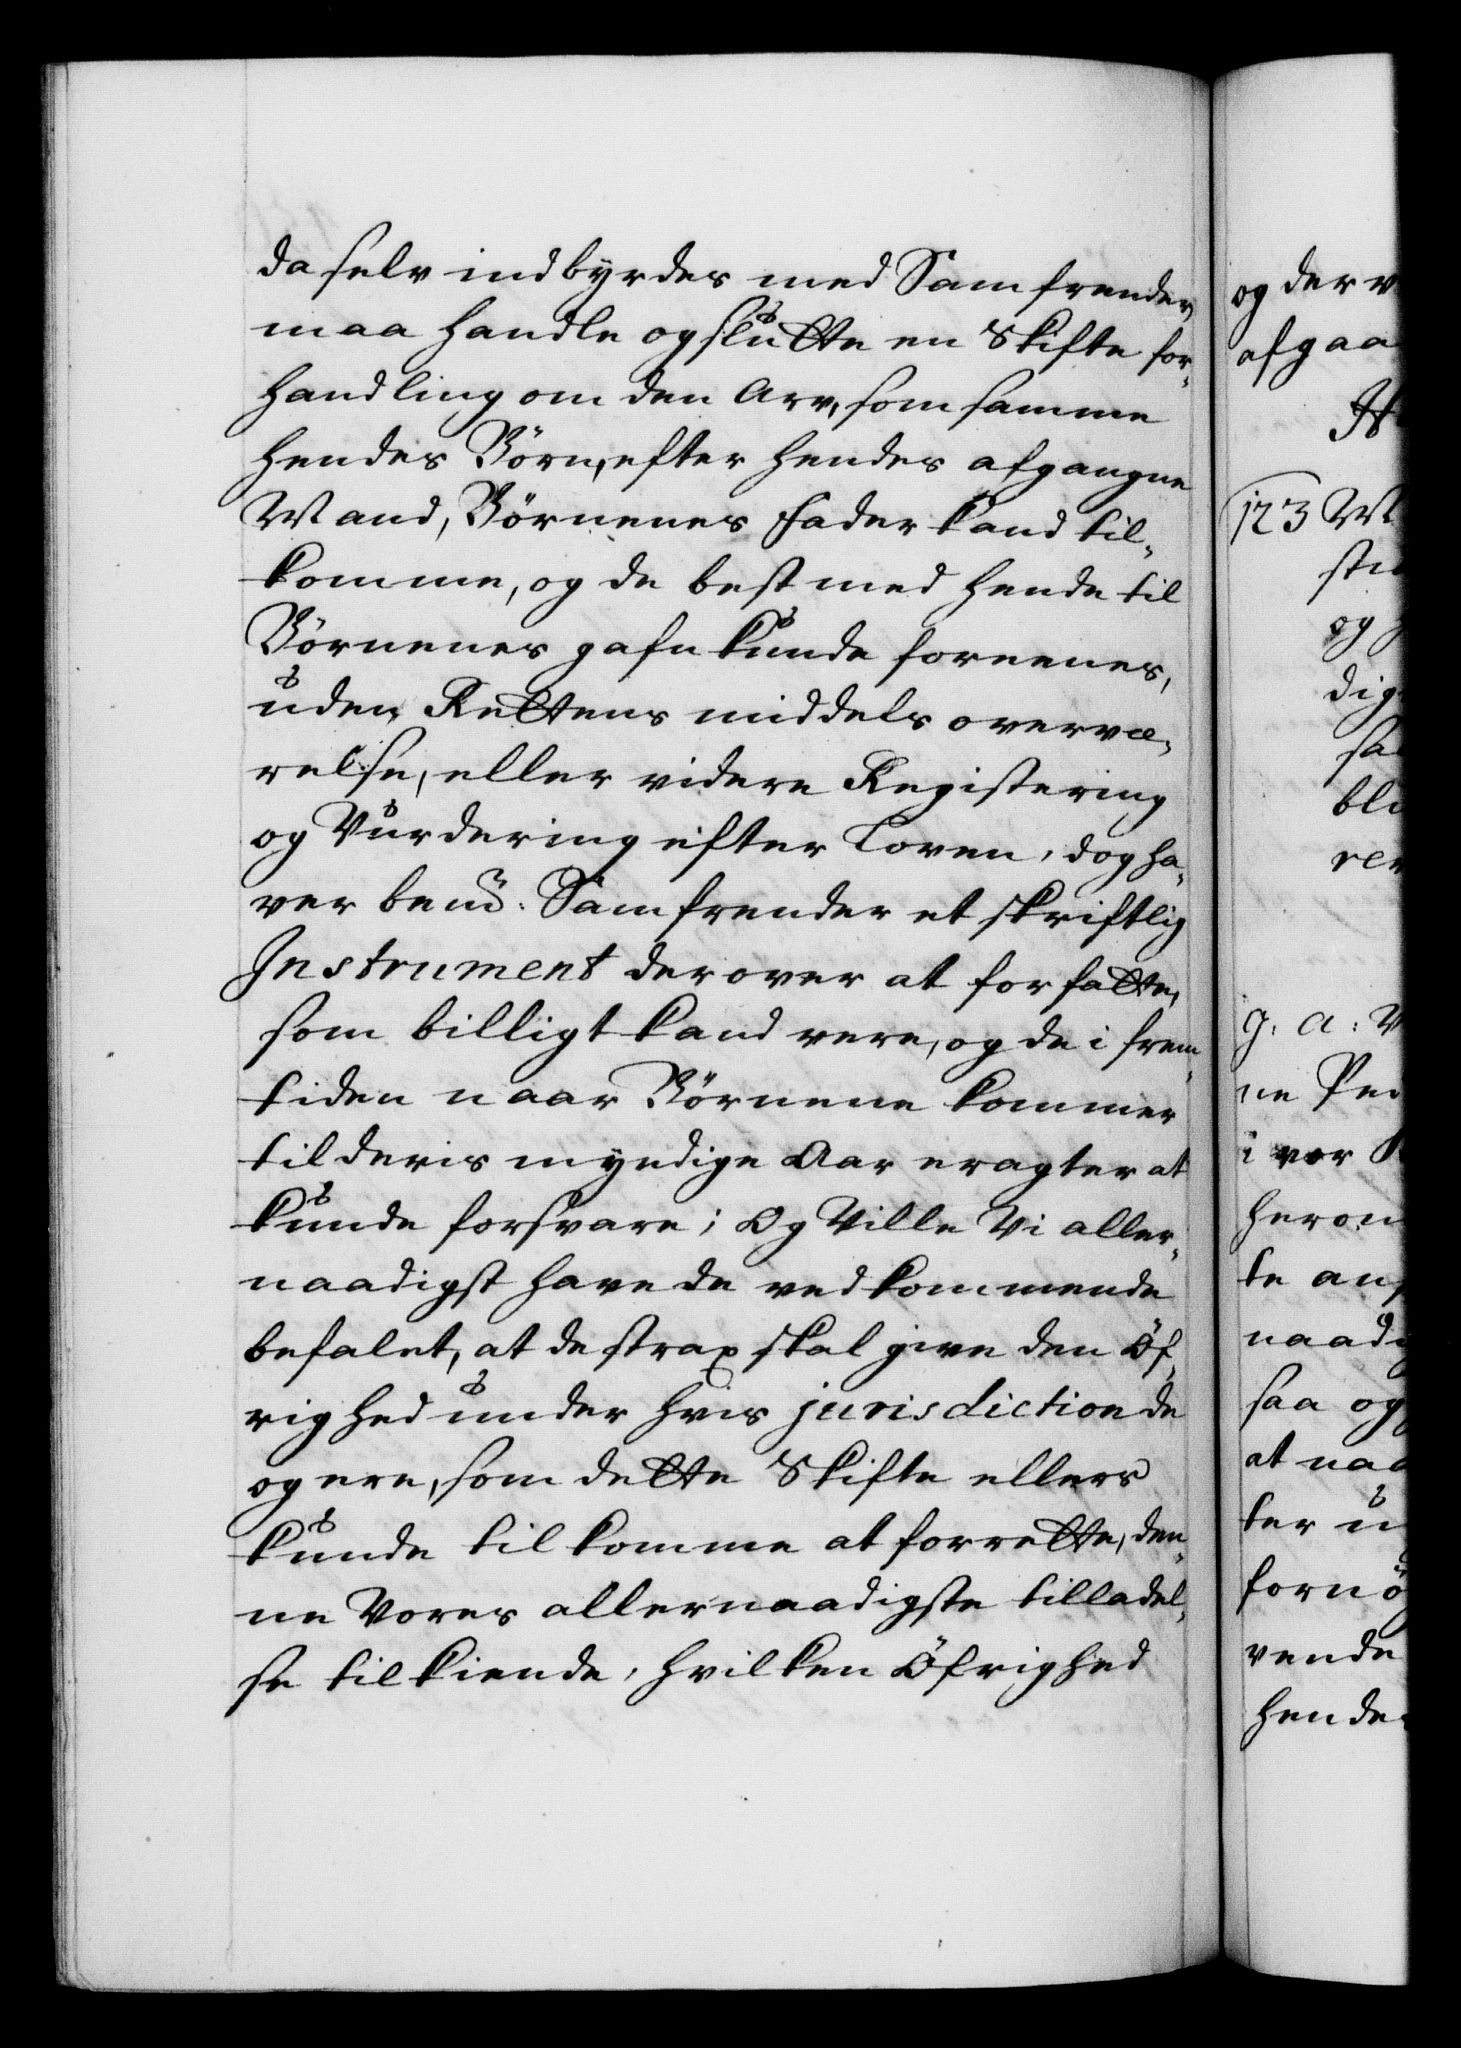 da selv indbyrdes med Samfrender,
maa handle og slutte en Skifte for-
handling om den Arv, som samme
hendes Börn, efter hendes afgangne
Mand, Börnenes Fader kand til-
komme, og de best med hende til
Börnenes gafn kunde foreenes,
uden Rettens middels overvæ-
relse, eller videre Registering
og Vurdering efter Loven, dog ha-
ver bemte: Samfrender et skriftlig
Instrument derover at forfatte,
som billigt kand vere, og de i frem-
tiden naar Börnene kommer
til deris myndige Aar eragter at
kunde forsvare; Og Ville Vi aller-
naadigst have de vedkommende
befalet, at de strax skal give den Öf-
righed under hvis jurisdiction de
og ere, som dette Skifte ellers
kunde tilkomme at forrette, den-
ne Vores allernaadigste tilladel-
se tilkiende, hvilken Öfrighed
og der
afgaa
123
og
g. a:
ne
i vor
te
naad
saa og
at
ter
vende